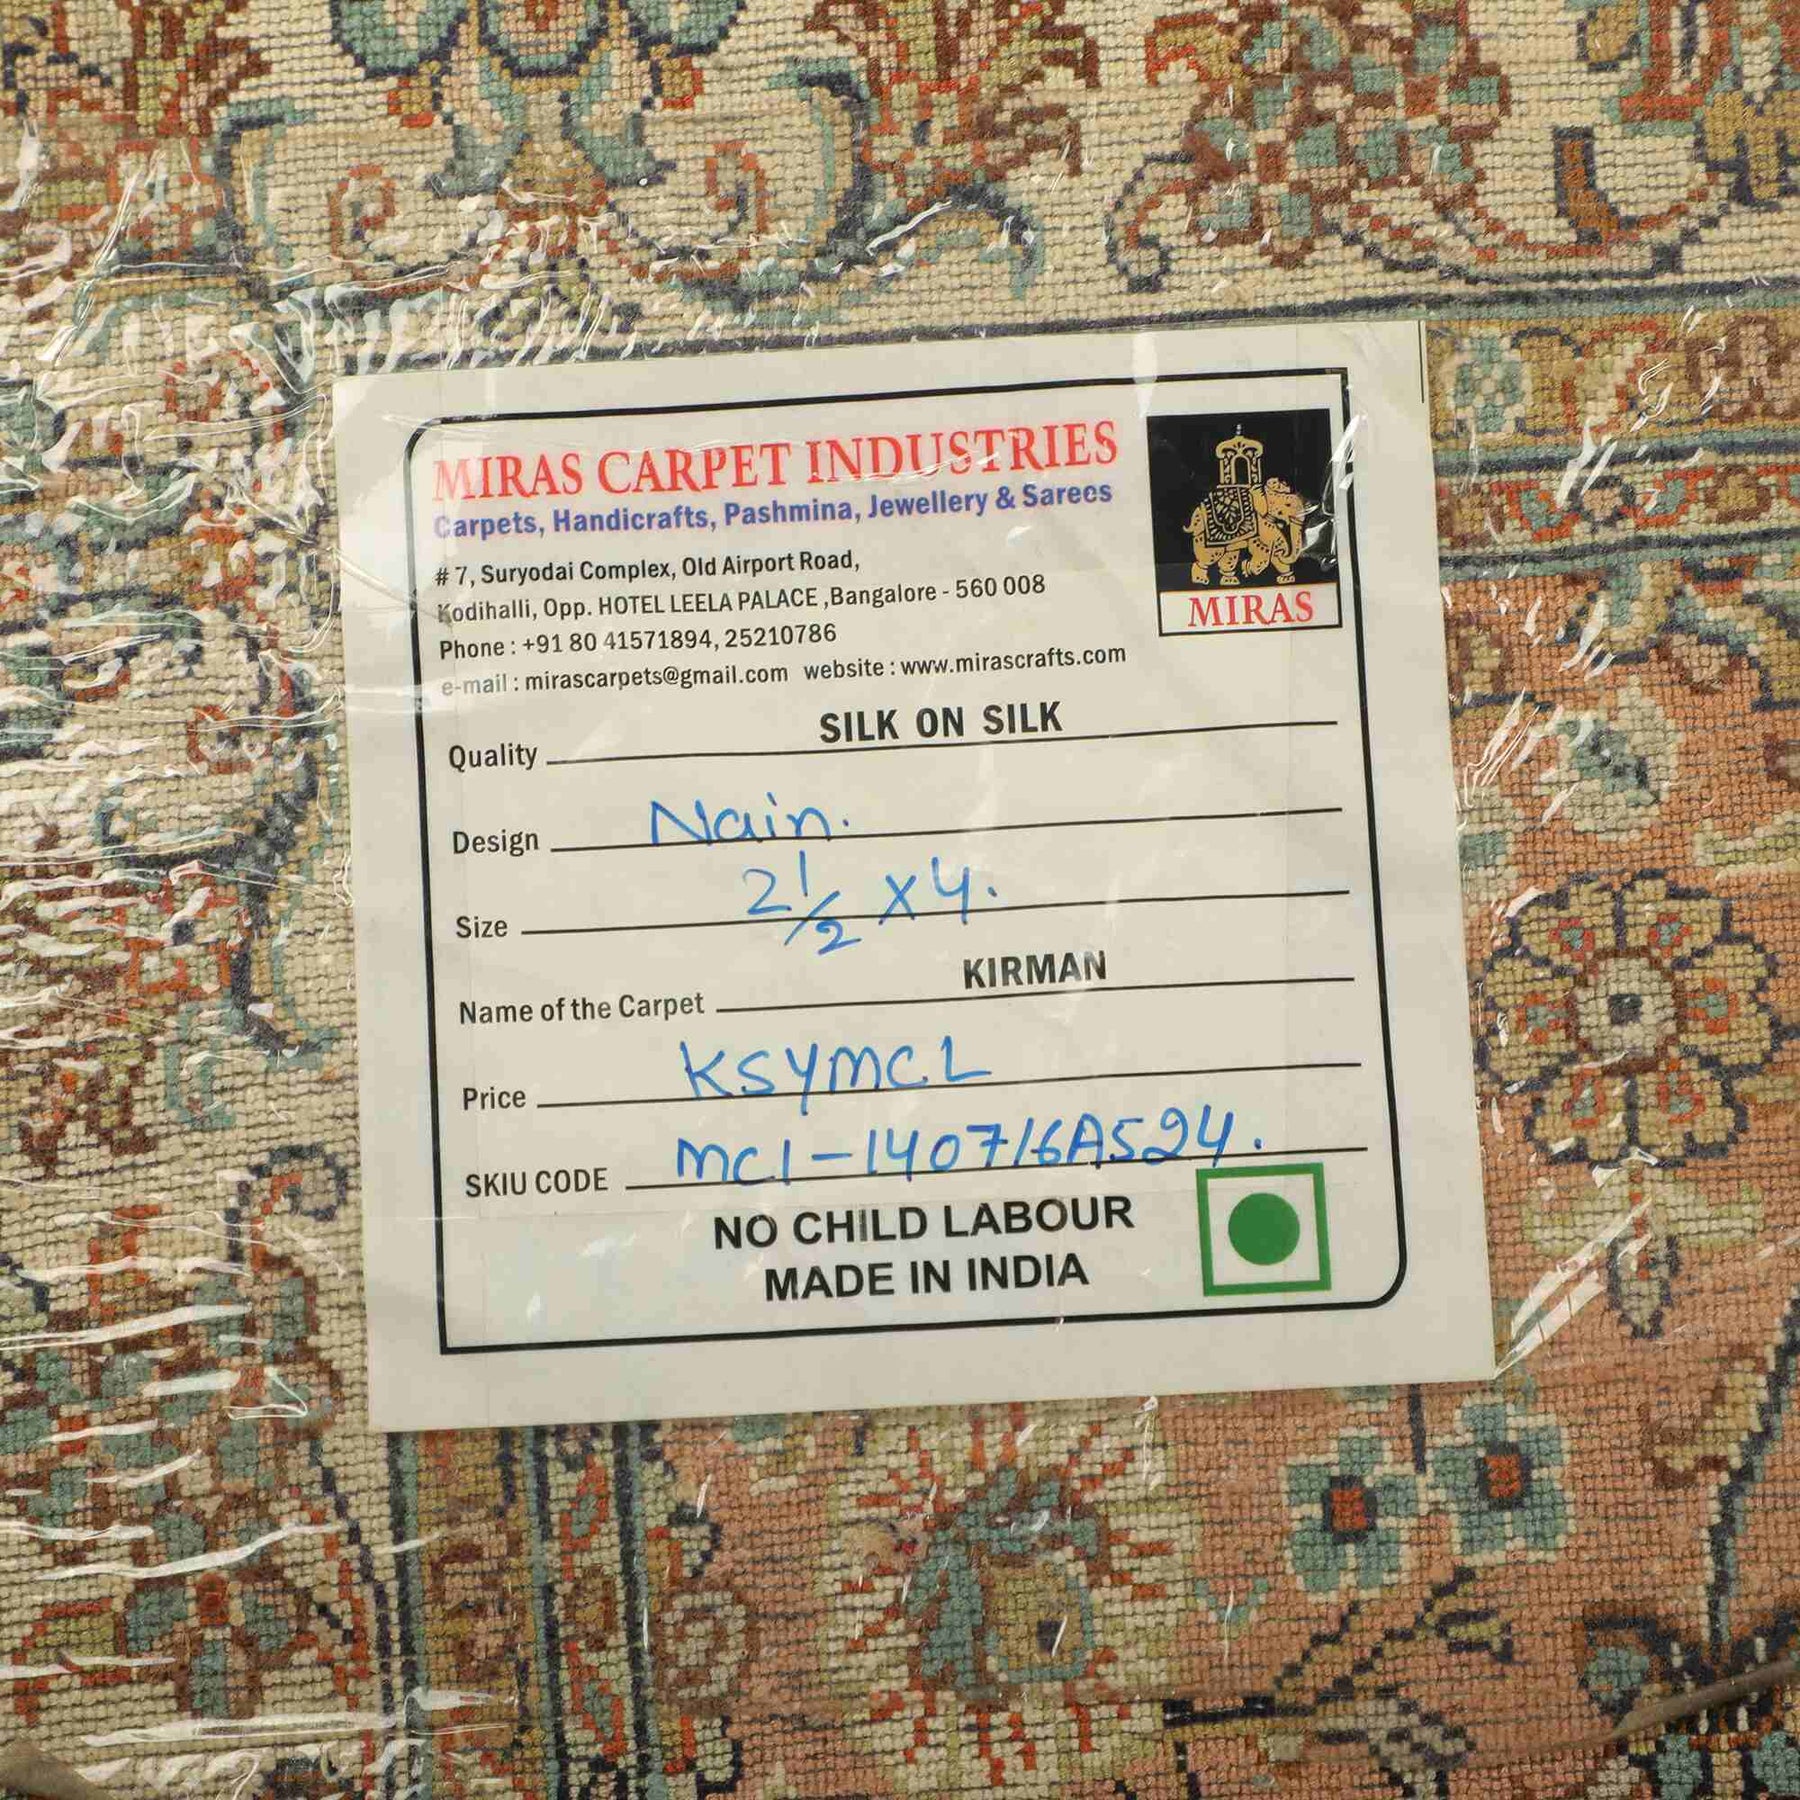 MIRAS CARPET INDUSTRIES
Carpets, Handicrafts, Pashmina, Jewellery & Sarees
# 7, Suryodai Complex, Old Airport Road,
Kodihalli, Opp. HOTEL LEELA PALACE ,Bangalore - 560 008
Phone : +91 80 41571894, 25210786
e-mail : mirascarpets@gmail.com website : www.mirascrafts.com
MIRAS
Quality SILK ON SILK
Design Nain.
Size 2 1/2 x 4.
Name of the Carpet KIRMAN
Price KSYMCL
SKIU CODE MCI-140716A524.
NO CHILD LABOUR
MADE IN INDIA